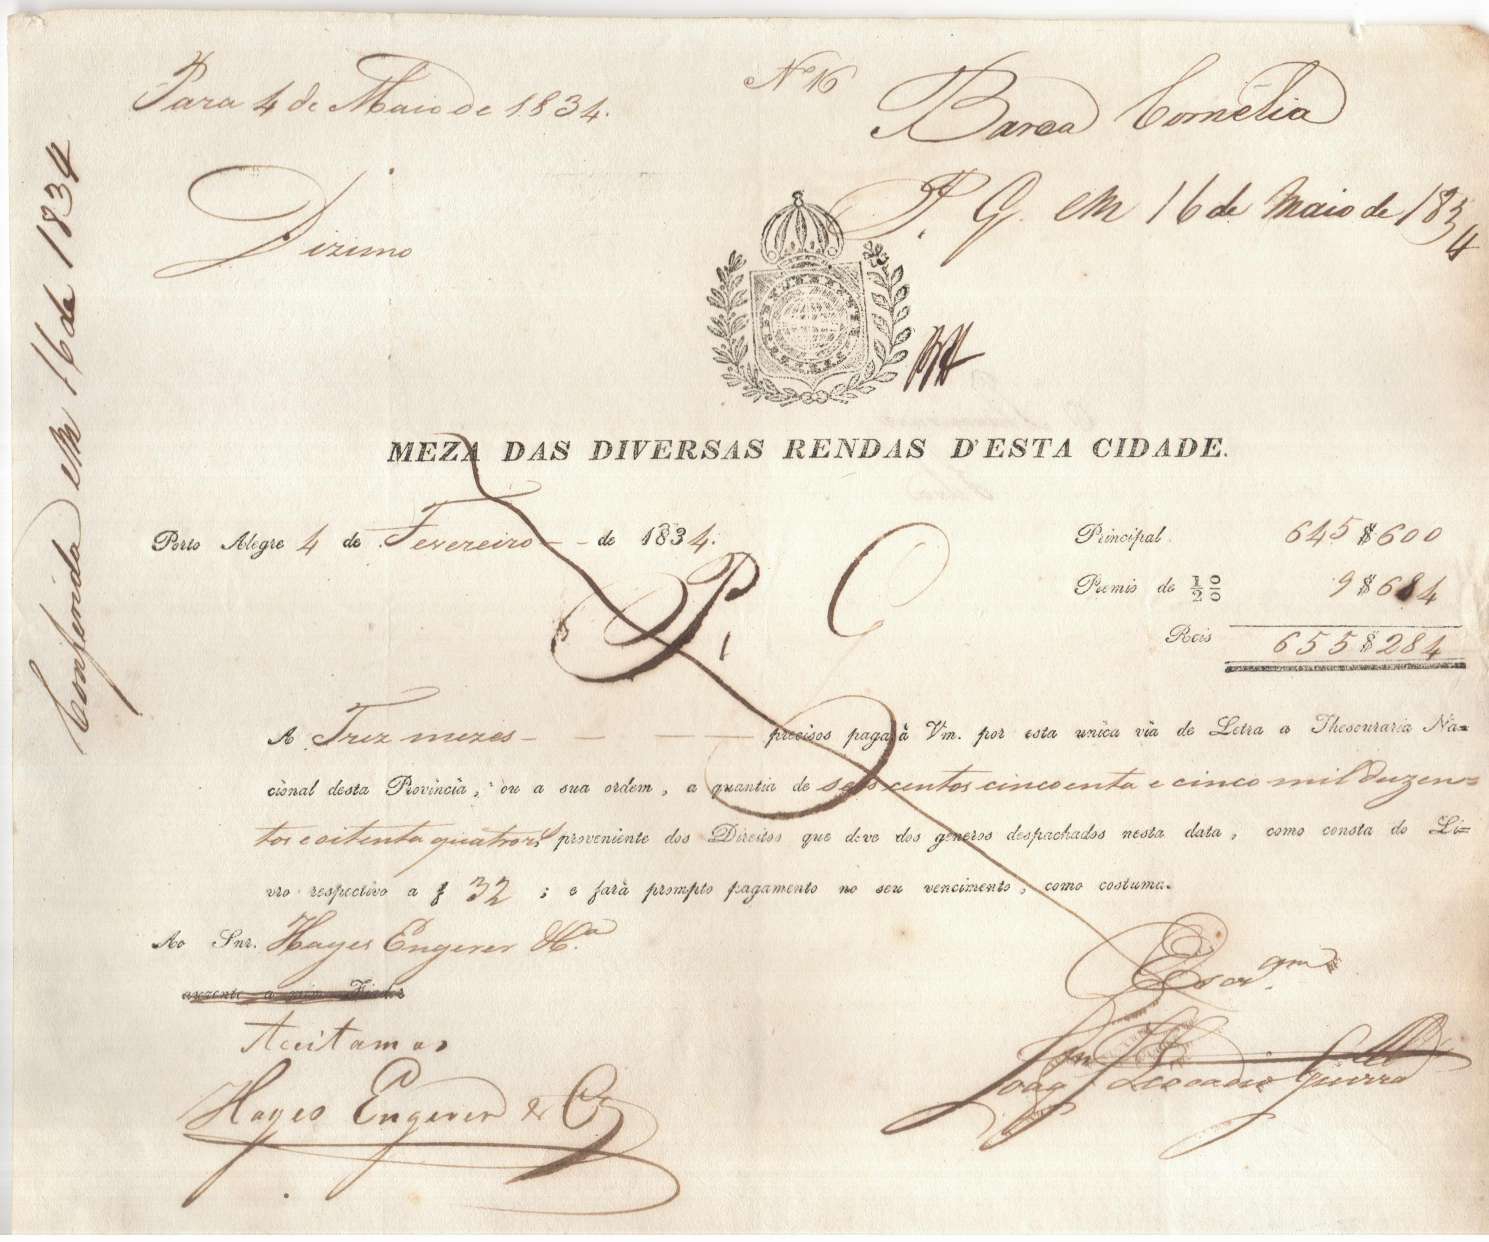 Para 4 de Maio de 1834.
Nº 16
Barca Cornélia
Dizimo
P. G. em 16 de Maio de 1834
Conferida em 16 de 1834
MEZA DAS DIVERSAS RENDAS D'ESTA CIDADE.
Porto Alegre 4 de Fevereiro - - de 1834.
Principal. 645$600
Premio de 1/2 0/0 9$684
Reis 655$284
P. G
A Trez mezes - - - precisos pagará Vm. por esta unica via de Letra a Thesouraria Na=
cional desta Provincia, ou a sua ordem, a quantia de seis centos cincoenta e cinco mil duzen=
tos e oitenta quatro rs proveniente dos Direitos que deve dos generos despachados nesta data, como consta do Li=
vro respectivo a f 32 ; e fará prompto pagamento no seu vencimento, como costuma.
Ao Snr. Hayes Engerer & Cª
Aceitamos
Hayes Engerer & Cª
Escr.am
Joaq.m Leocadio Guerra